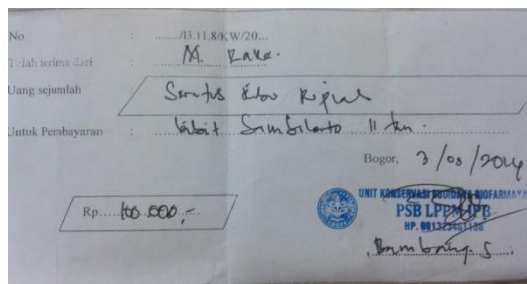 No : ......./I3.11.8/KW/20...
Telah terima dari : M. Raka.
Uang sejumlah : Seratus Ribu Rupiah
Untuk Pembayaran : bibit Sambiloto 11
Bogor, 3/03/2014
UNIT KONSERVASI BUDIDAYA BIOFARMAKA
PSB LPPM-IPB
Rp. 100.000,-
HP.
Bambang S.